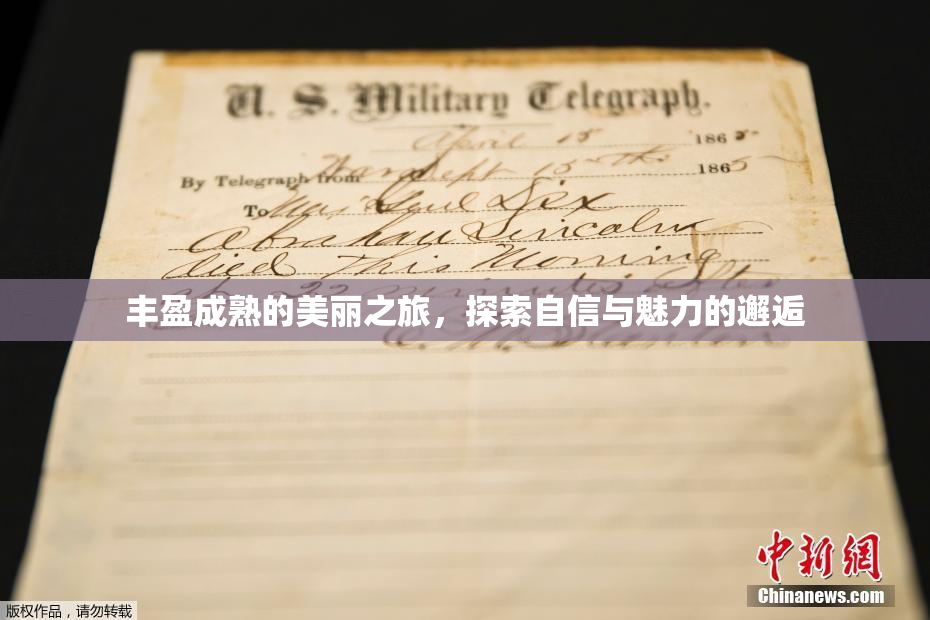 U. S. Military Telegraph.
April 15 1865
By Telegraph from War Dept 15th 1865
To Maj Genl Dix
Abraham Lincoln
died This Morning
22 minutes after
丰盈成熟的美丽之旅，探索自信与魅力的邂逅
E. M. Stanton
中新网
Chinanews.com
版权作品，请勿转载